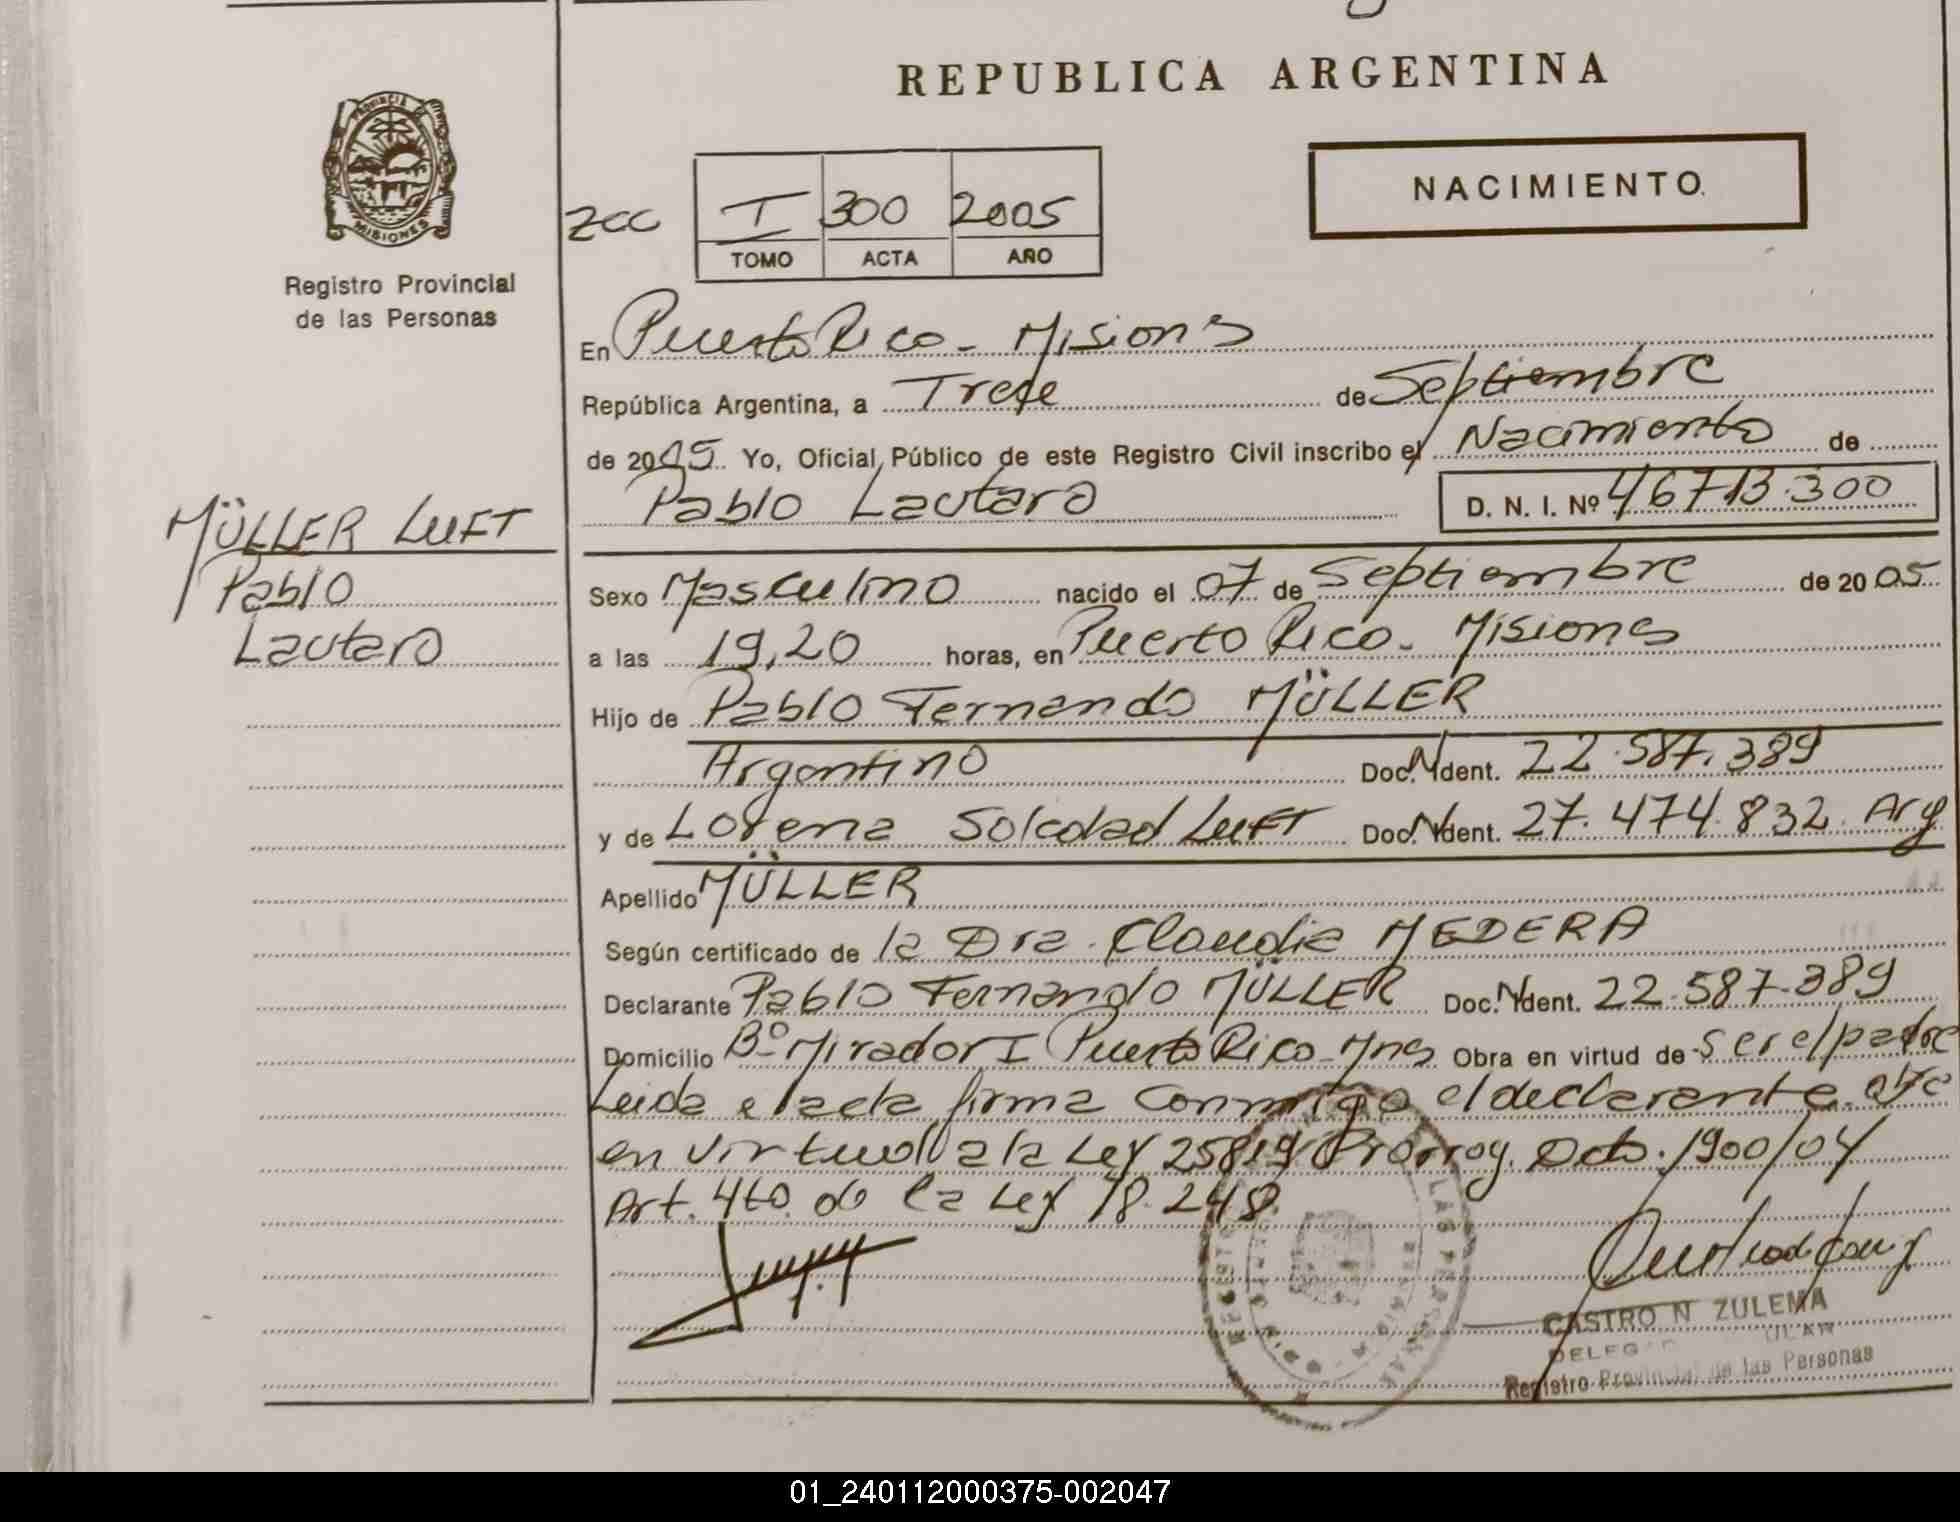 REPUBLICA ARGENTINA
PROVINCIA DE
MISIONES
Registro Provincial
de las Personas
NACIMIENTO.
I 300 2005
TOMO ACTA AÑO
En Puerto Rico - Misiones
República Argentina, a Trece de Septiembre
de 2005. Yo, Oficial Público de este Registro Civil inscribo el Nacimiento de
Pablo Lautaro D. N. I. Nº 46713.300
MÜLLER LUFT
Pablo
Lautaro
Sexo Masculino nacido el 07 de Septiembre de 2005
a las 19,20 horas, en Puerto Rico - Misiones
Hijo de Pablo Fernando MÜLLER
Argentino Doc. N Ident. 22.587.389
y de Lorena Soledad LUFT Doc. N Ident. 27.474.832 Arg
Apellido MÜLLER
Según certificado de la Dra. Claudia MEDERA
Declarante Pablo Fernando MÜLLER Doc. N Ident. 22.587.389
Domicilio Bº Mirador I Puerto Rico - Mnes Obra en virtud de ser el padre
Leida el acta firma conmigo el declarante.
en virtud a la Ley 25819 Prorrog. Dcto. 1900/04
Art. 4to. de la Ley 18.248.
CASTRO N ZULEMA
Registro Provincial de las Personas
01_240112000375-002047